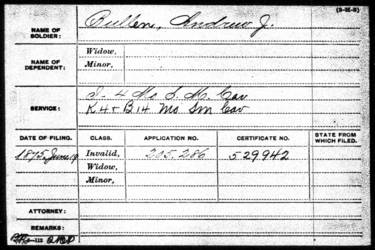 (3-25-5)
NAME OF SOLDIER: Cullen, Andrew J.
NAME OF DEPENDENT: Widow,
Minor,
SERVICE: 4 Mo S. M. Cav
K 4 & B 14 Mo Sm Cav
DATE OF FILING. CLASS. APPLICATION NO. CERTIFICATE NO. STATE FROM WHICH FILED.
1875, June 19 Invalid, 205,286 529942
Widow,
Minor,
ATTORNEY:
REMARKS: